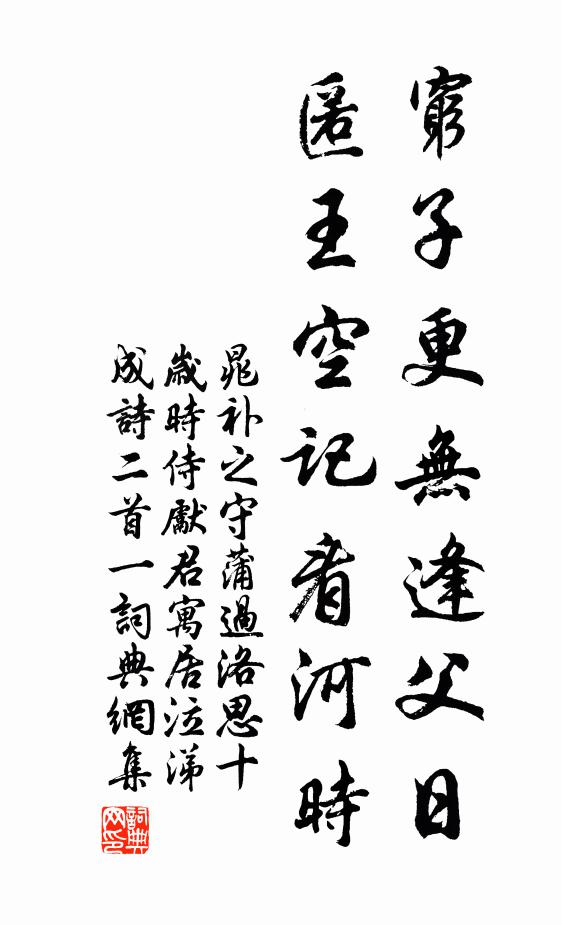 窮子更無逢父日
匿王空記看河時
晁补之守蒲過洛思十
歲時侍獻君寓居泣涕
成詩二首一詞典網集
詞典网印